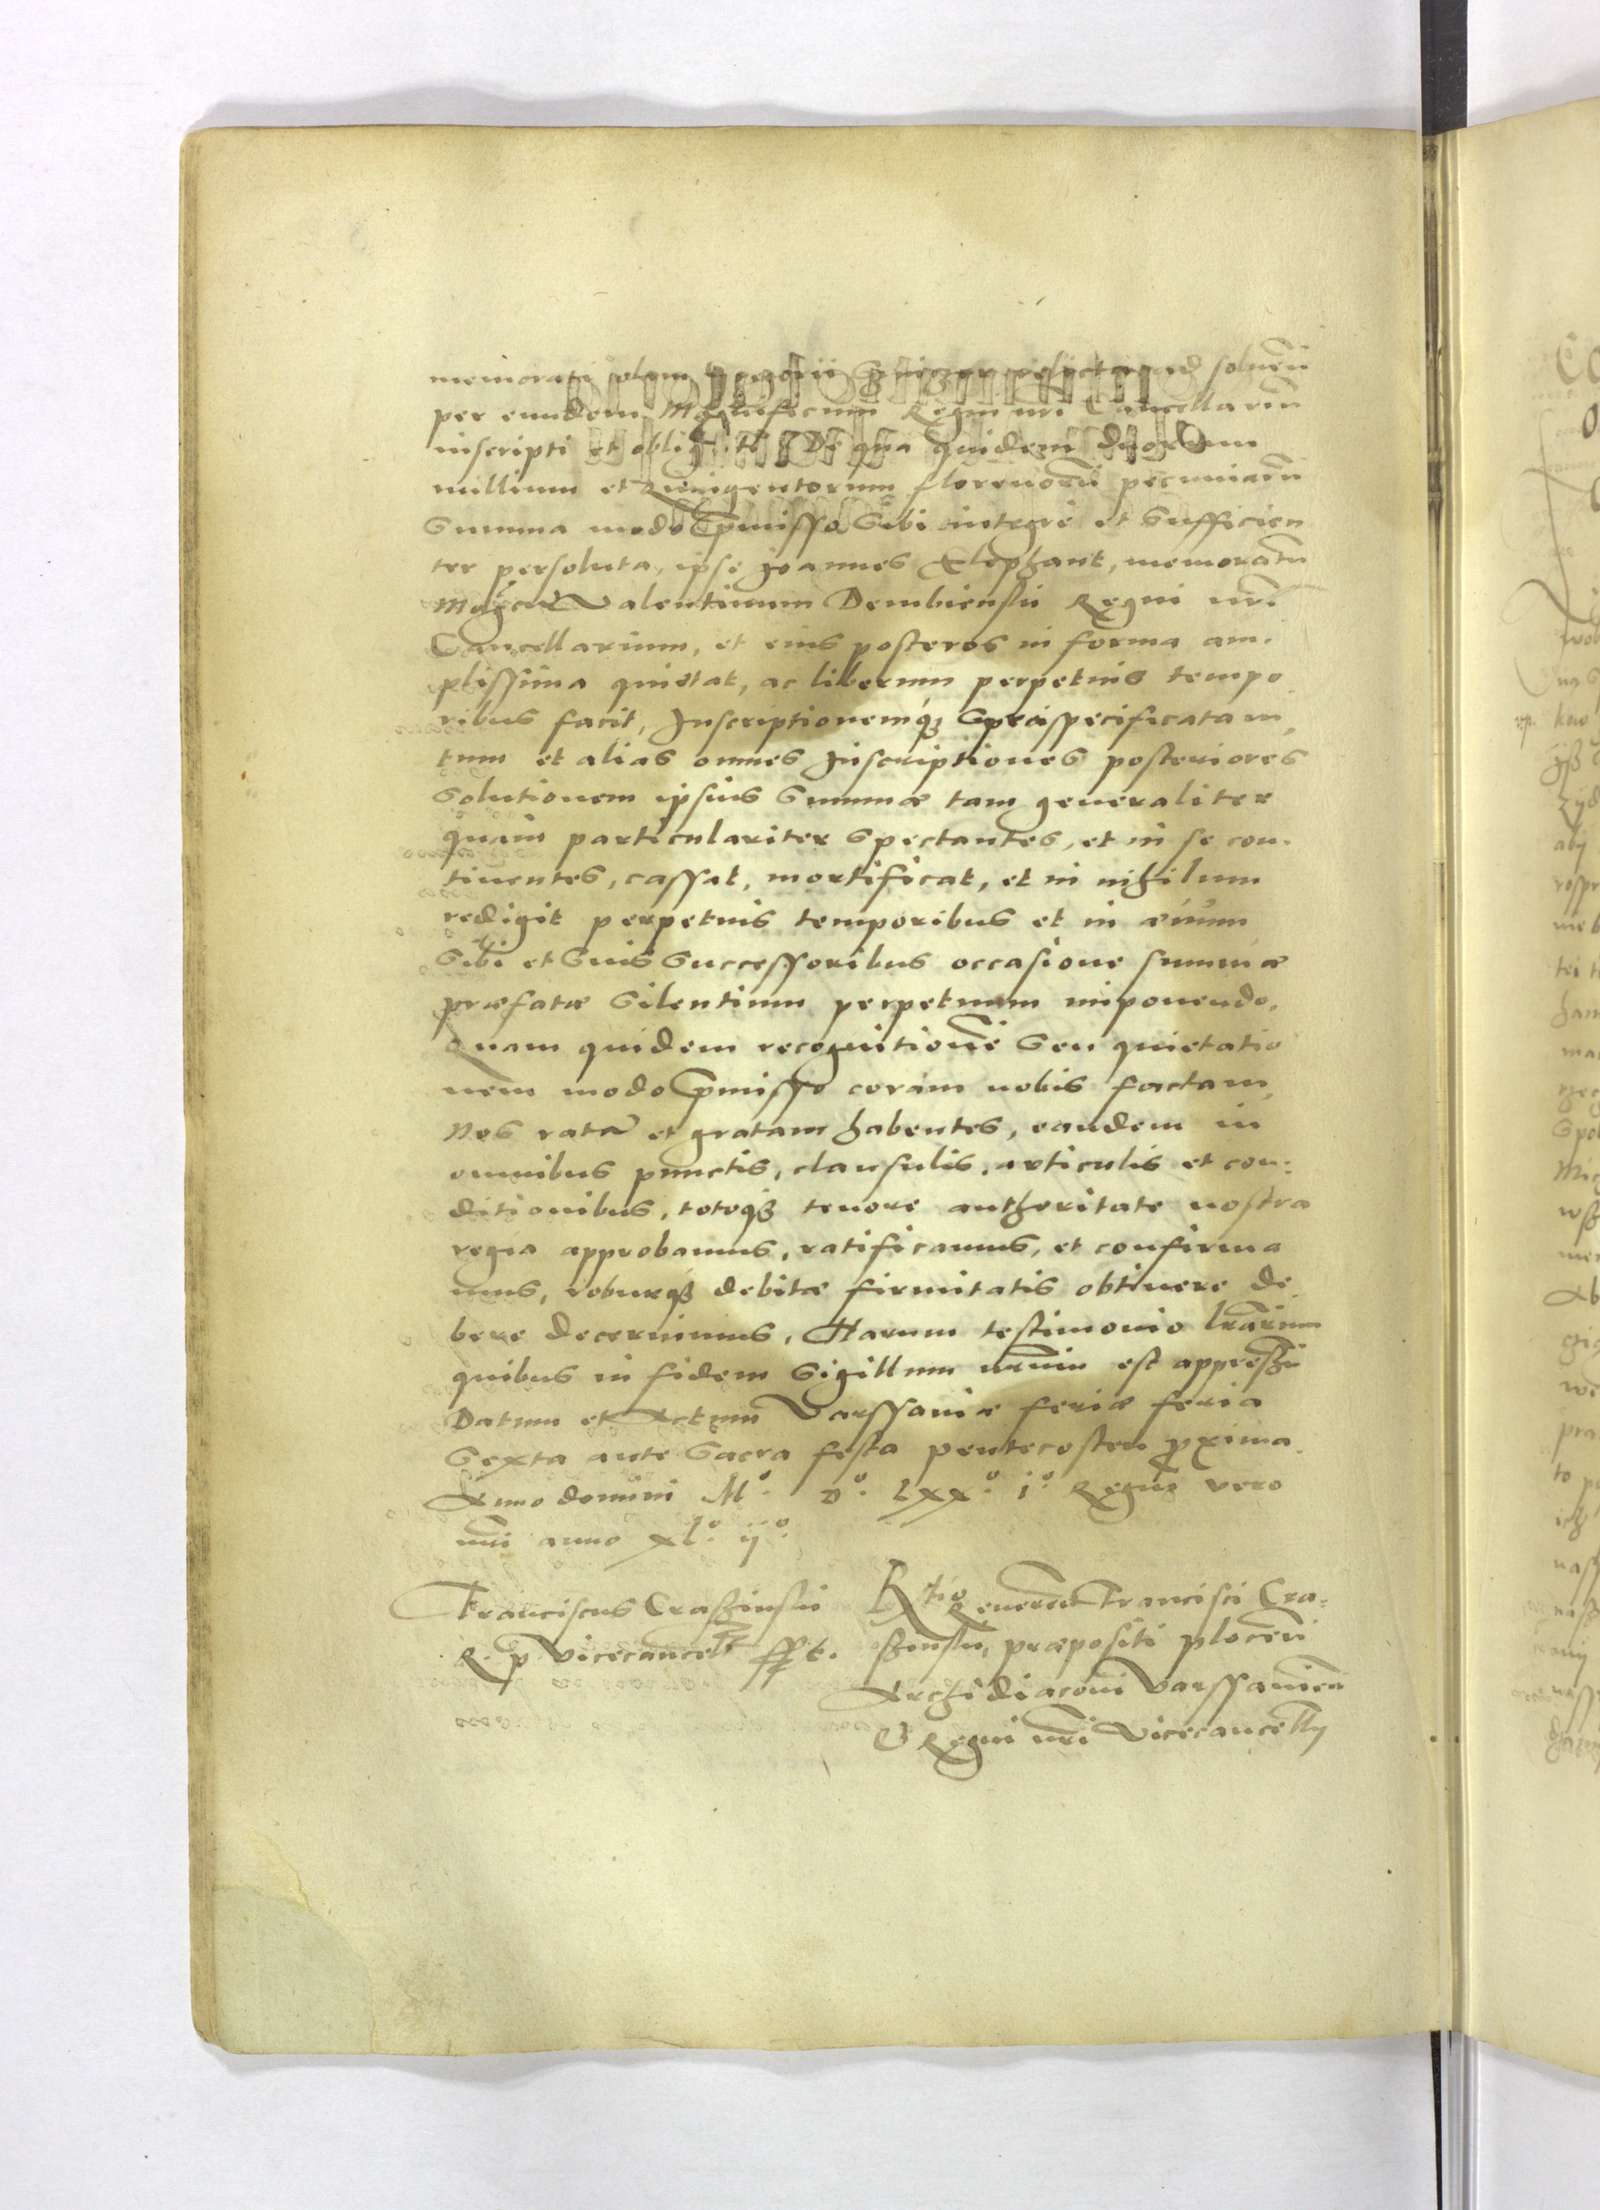 memorati olim
per eundem Magnificum Regni nri Cancellariu
inscripti et obligati De qua quidem duorum
millium et Quingentorum florenorũ pecuniarũ
Summa modo pmisso Sibi integre et Sufficien
ter persoluta, ipse Joannes Elephant, memoratũ
Magcũ Valentinum Dembienski Regni nri
Cancellarium, et eius posteros in forma am.
plissima quietat, ac liberum perpetuis tempo
ribus facit, Inscriptionemq specificatam,
tum et alias omnes Inscriptiones posteriores
Solutionem ipsius Summæ tam generaliter
quam particulariter Spectantes, et in se con.
tinentes, cassat, mortificat, et in nihilum
redigit perpetuis temporibus et in ævum
Sibi et Suis Successoribus occasione summæ
præfatæ Silentium perpetuum imponendo.
Quam quidem recognitionẽ Seu quietatio
nem modo pmisso coram nobis factam,
Nos ratã et gratam habentes, eandem in
omnibus punctis, clausulis, articulis et con:
ditionibus, totoq tenore authoritate nostra
regia approbamus, ratificamus, et confirma
mus, roburq debitæ firmitatis obtinere de.
bere decernimus, Harum testimonio lrarum
quibus in fidem Sigillum nrum est appressũ
Datum et Actum Varssaviæ feriæ feria
Sexta ante Sacra festa pentecosten pxima.
Anno domini Mº. Dº. Lxxº. iº. Regni vero
nri anno xlº. ijº.
Franciscus Craßinski
R. p. Vicecancell sst.
Rtio Reveren Francisci Cra:
ßinski, præpositi plocen
Archidiaconi Varssavien
& Regni nri Vicecancellÿ